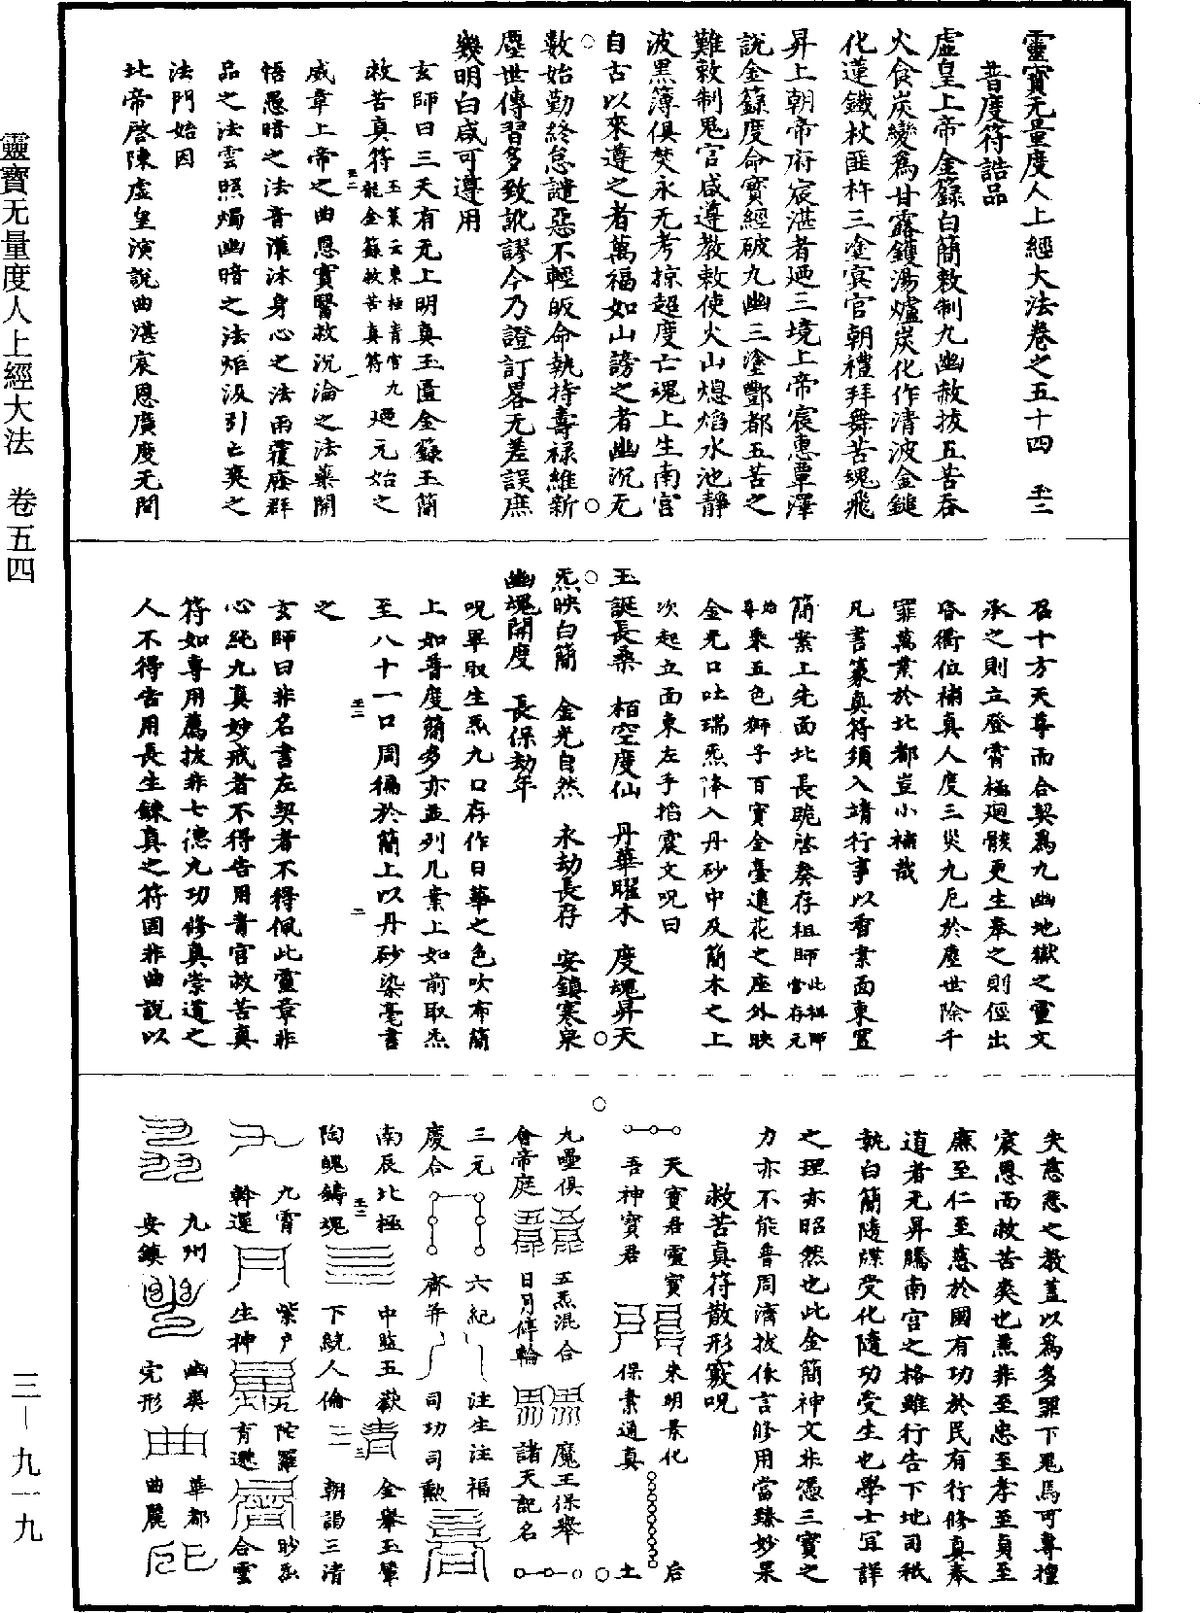 靈寶无量度人上經大法卷之五十四 𤣩二
普度符誥品
虛皇上帝金籙白簡敕制九幽赦拔五苦吞
火食炭變為甘露鑊湯爐炭化作清波金鎚
化蓮鐵杖匪杵三塗冥官朝禮拜舞苦魂飛
昇上朝帝府宸湛者迺三境上帝宸惠覃澤
說金籙度命寶經破九幽三塗酆都五苦之
難敕制鬼官咸遵教敕使火山熄焰水池靜
波黑簿俱焚永无考掠超度亡魂上生南宮
自古以來遵之者萬福如山謗之者幽沉无
數始勤終怠譴惡不輕皈命執持壽祿維新
塵世傳習多致訛謬今乃證訂畧无差誤庶
幾明白咸可遵用
玄師曰三天有无上明真玉匱金籙玉簡
救苦真符玉篆云東極青宮九龍金籙救苦真符迺元始之
威章上帝之曲恩寶醫救沉淪之法藥開
悟愚暗之法音灌沐身心之法雨覆廕群
品之法雲照燭幽暗之法炬汲引亡爽之
法門始因
北帝啓陳虛皇演說曲湛宸恩廣度无間
召十方天尊而合契為九幽地獄之靈文
承之則立登霄極廻骸更生奉之則徑出
昏衢位補真人度三災九厄於塵世除千
罪萬業於北都豈小補哉
凡書篆真符須入靖行事以香案面東置
簡案上先面北長跪啓奏存祖師此祖師當存元始尊
乘五色獅子百寶金臺蓮花之座外映
金光口吐瑞炁降入丹砂中及簡木之上
次起立面東左手掐震文呪曰
玉誕長桑 栢空度仙 丹華曜木 度魂昇天
炁映白簡 金光自然 永劫長存 安鎮寒泉
幽魂開度 長保劫年
呪畢取生炁九口存作日華之色吹布簡
上如普度簡多亦並列几案上如前取炁
至八十一口周徧於簡上以丹砂染毫書
之
玄師曰非名書左契者不得佩此靈章非
心純九真妙戒者不得告用青宮救苦真
符如專用薦拔非七德九功修真崇道之
人不得告用長生鍊真之符因非曲說以
失慈悲之教蓋以為多罪下鬼焉可專擅
宸恩而救苦爽也兼非至忠至孝至貞至
廉至仁至慈於國有功於民有行修真奉
道者无昇騰南宮之格雖行告下地司祇
執白簡隨牒受化隨功受生也學士宜詳
之理亦昭然也此金簡神文非憑三寶之
力亦不能普周濟拔依言修用當臻妙果
救苦真符散形竅呪
天寶君靈寶 朱明景化 后
吾神寶君 保素通真 土
九壘俱 五炁混合 魔王保舉
會帝庭 日月停輪 諸天記名
三元 六紀 注生注福
慶合 齊并 司功司勲
南辰北極 中監五嶽 金轝玉輦
陶魄鑄魂 下統人倫 朝謁三清
九霄 紫戶 陀羅 眇忝
幹運 生神 育邈 合雲
九州 幽爽 華都
安鎮 完形 曲麗
靈寶无量度人上經大法 卷五四
三－九一九